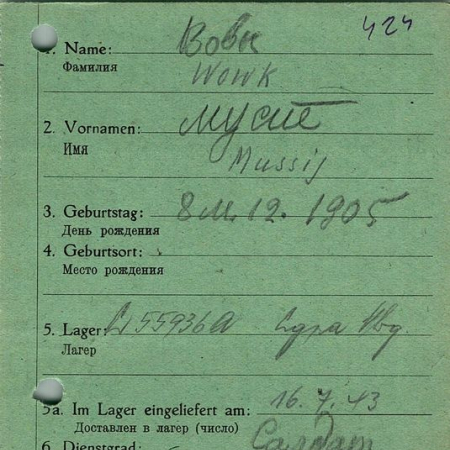 424
1. Name: Вовк
Фамилия Wowk
2. Vornamen: Мусій
Имя Mussij
3. Geburtstag: 8 М. 12. 1905
День рождения
4. Geburtsort:
Место рождения
5. Lager: 55936A
Лагер
5a. Im Lager eingeliefert am: 16. 7. 43
Доставлен в лагер (число)
6. Dienstgrad: Салдат